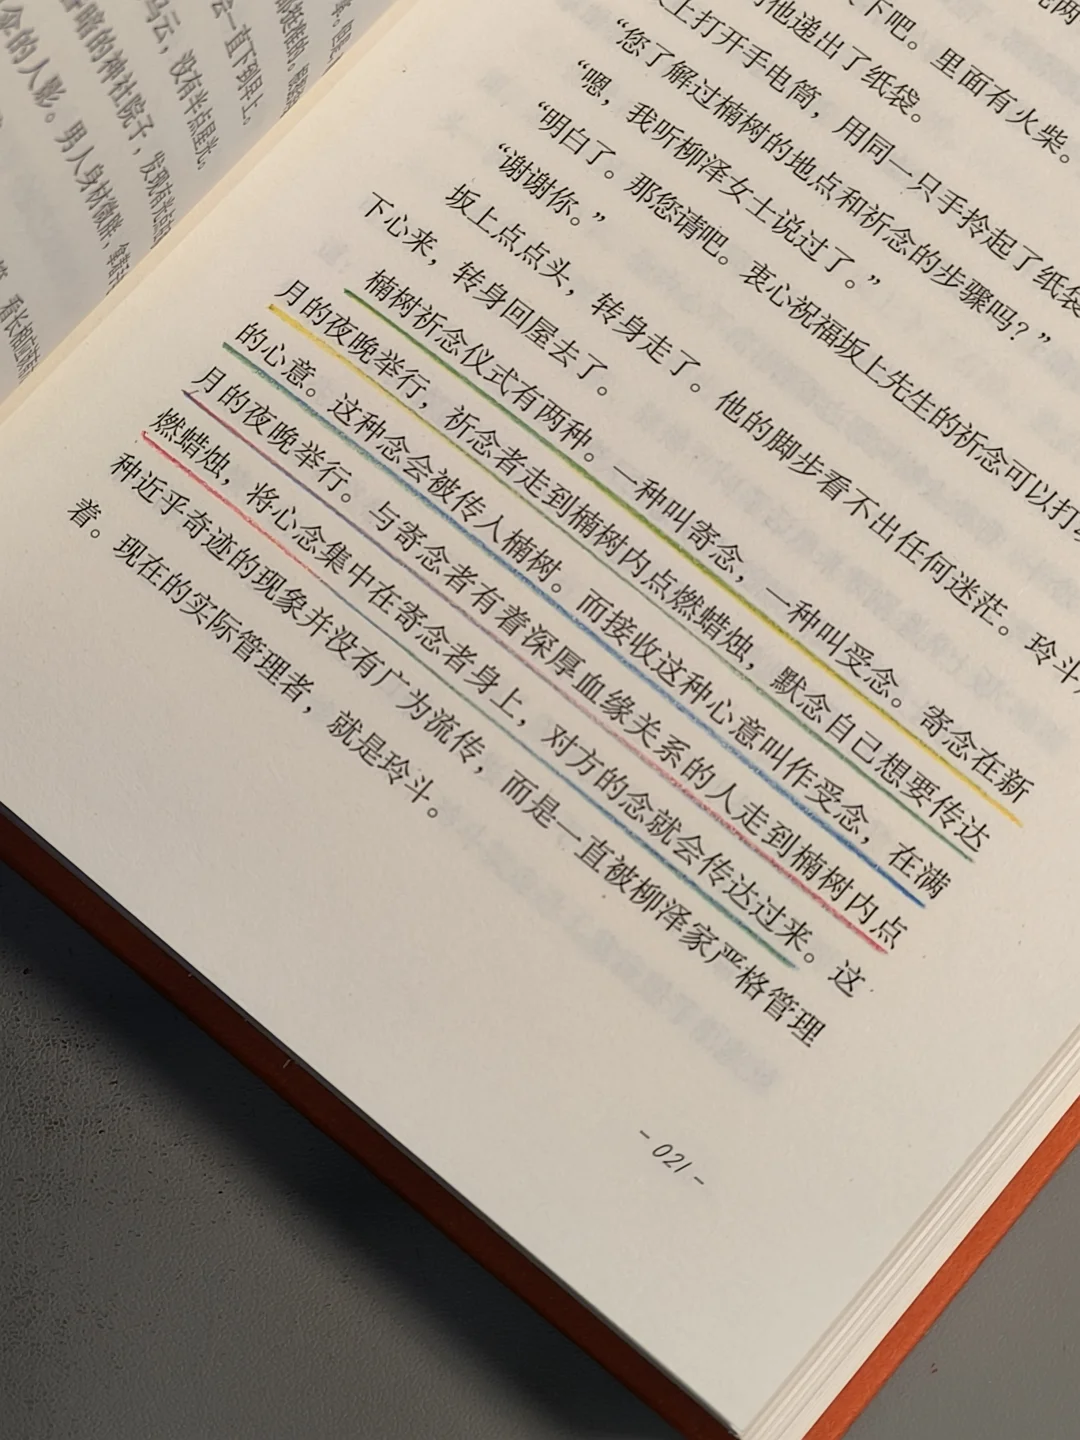 会一直下到早上。
乌云，没有半点星光。
暗的神社院子，发现有
的人影。男人身材微胖，
下吧。里面有火柴。
他递出了纸袋。
上打开手电筒，用同一只手拎起了纸袋
“您了解过楠树的地点和祈念的步骤吗？”
“嗯，我听柳泽女士说过了。”
“明白了。那您请吧。衷心祝福坂上先生的祈念可以打
“谢谢你。”
坂上点点头，转身走了。他的脚步看不出任何迷茫。玲斗
下心来，转身回屋去了。
楠树祈念仪式有两种。一种叫寄念，一种叫受念。寄念在新
月的夜晚举行，祈念者走到楠树内点燃蜡烛，默念自己想要传达
的心意。这种念会被传入楠树。而接收这种心意叫作受念，在满
月的夜晚举行。与寄念者有着深厚血缘关系的人走到楠树内点
燃蜡烛，将心念集中在寄念者身上，对方的念就会传达过来。这
种近乎奇迹的现象并没有广为流传，而是一直被柳泽家严格管理
着。现在的实际管理者，就是玲斗。
- 021 -